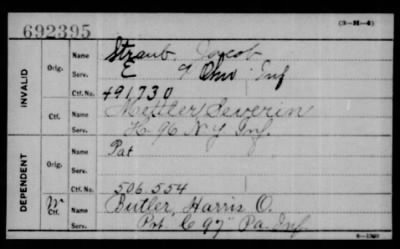 692395
(3—M—4)
INVALID
Orig.
Name Straub, Jacob
Serv. E 9 Ohio Inf
Ctf. No. 491,730
Ctf.
Name Mettler Severin
Serv. H. 96 N Y Inf.
DEPENDENT
Orig.
Name Pat
Serv.
Ctf. No. 506.554
W Ctf.
Name Butler, Harris O.
Serv. Pvt C 97" Pa. Inf.